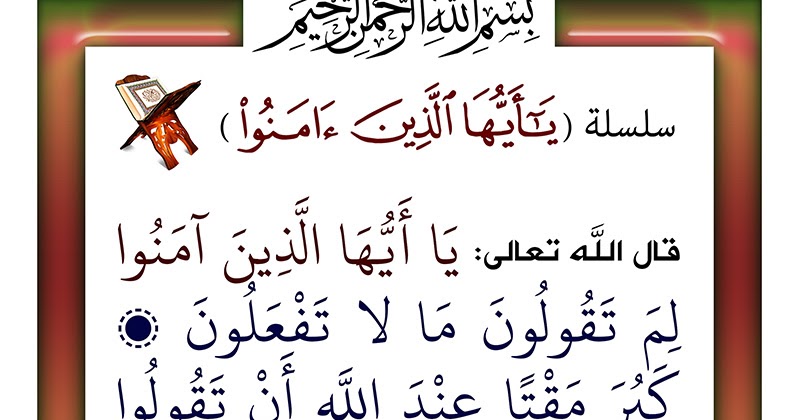 بِسْمِ اللَّهِ الرَّحْمَنِ الرَّحِيمِ
سلسلة (يَٰٓأَيُّهَا ٱلَّذِينَ ءَامَنُوا۟)
قال اللَّه تعالى: يَا أَيُّهَا الَّذِينَ آمَنُوا
لِمَ تَقُولُونَ مَا لا تَفْعَلُونَ
كَبُرَ مَقْتًا عِنْدَ اللَّهِ أَنْ تَقُولُوا